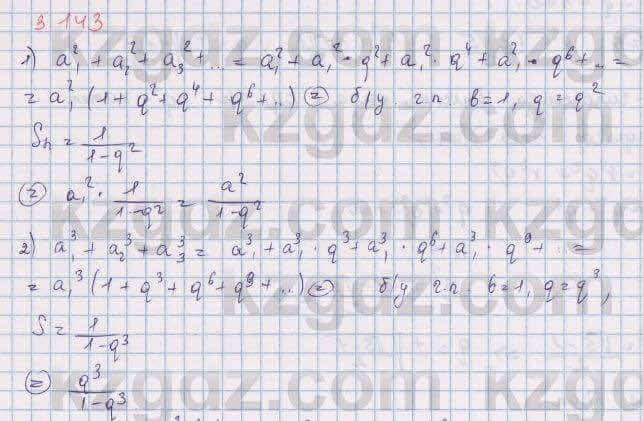 3.143
1) a₁² + a₂² + a₃² + ... = a₁² + a₁² · q² + a₁² · q⁴ + a₁² · q⁶ + ... =
= a₁² (1 + q² + q⁴ + q⁶ + ..) = б/у. г.п. b = 1, q = q²
Sn = 1/(1-q²)
= a₁² · 1/(1-q²) = a²/(1-q²)
2) a₁³ + a₂³ + a₃³ = a₁³ + a₁³ · q³ + a₁³ · q⁶ + a₁³ · q⁹ + .. =
= a₁³ (1 + q³ + q⁶ + q⁹ + ...) = б/у г.п. b = 1, q = q³,
S = 1/(1-q³)
= q³/(1-q³)
kzgdz.com